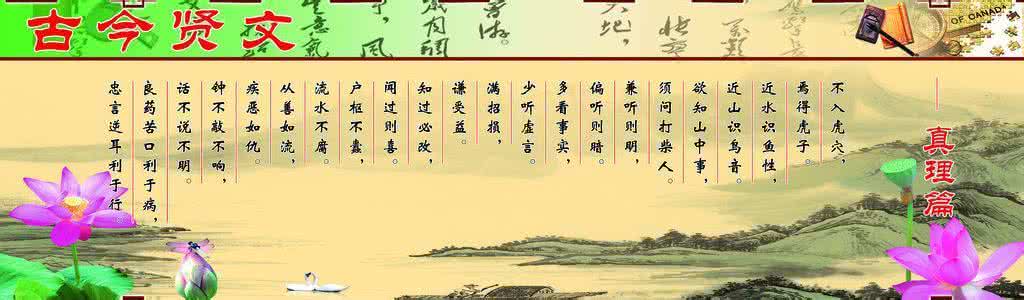 古今贤文
OF CANADA
真理篇
不入虎穴，
焉得虎子。
近水识鱼性，
近山识鸟音。
欲知山中事，
须问打柴人。
兼听则明，
偏听则暗。
多看事实，
少听虚言。
满招损，
谦受益。
知过必改，
闻过则喜。
户枢不蠹，
流水不腐。
从善如流，
疾恶如仇。
钟不敲不响，
话不说不明。
良药苦口利于病，
忠言逆耳利于行。